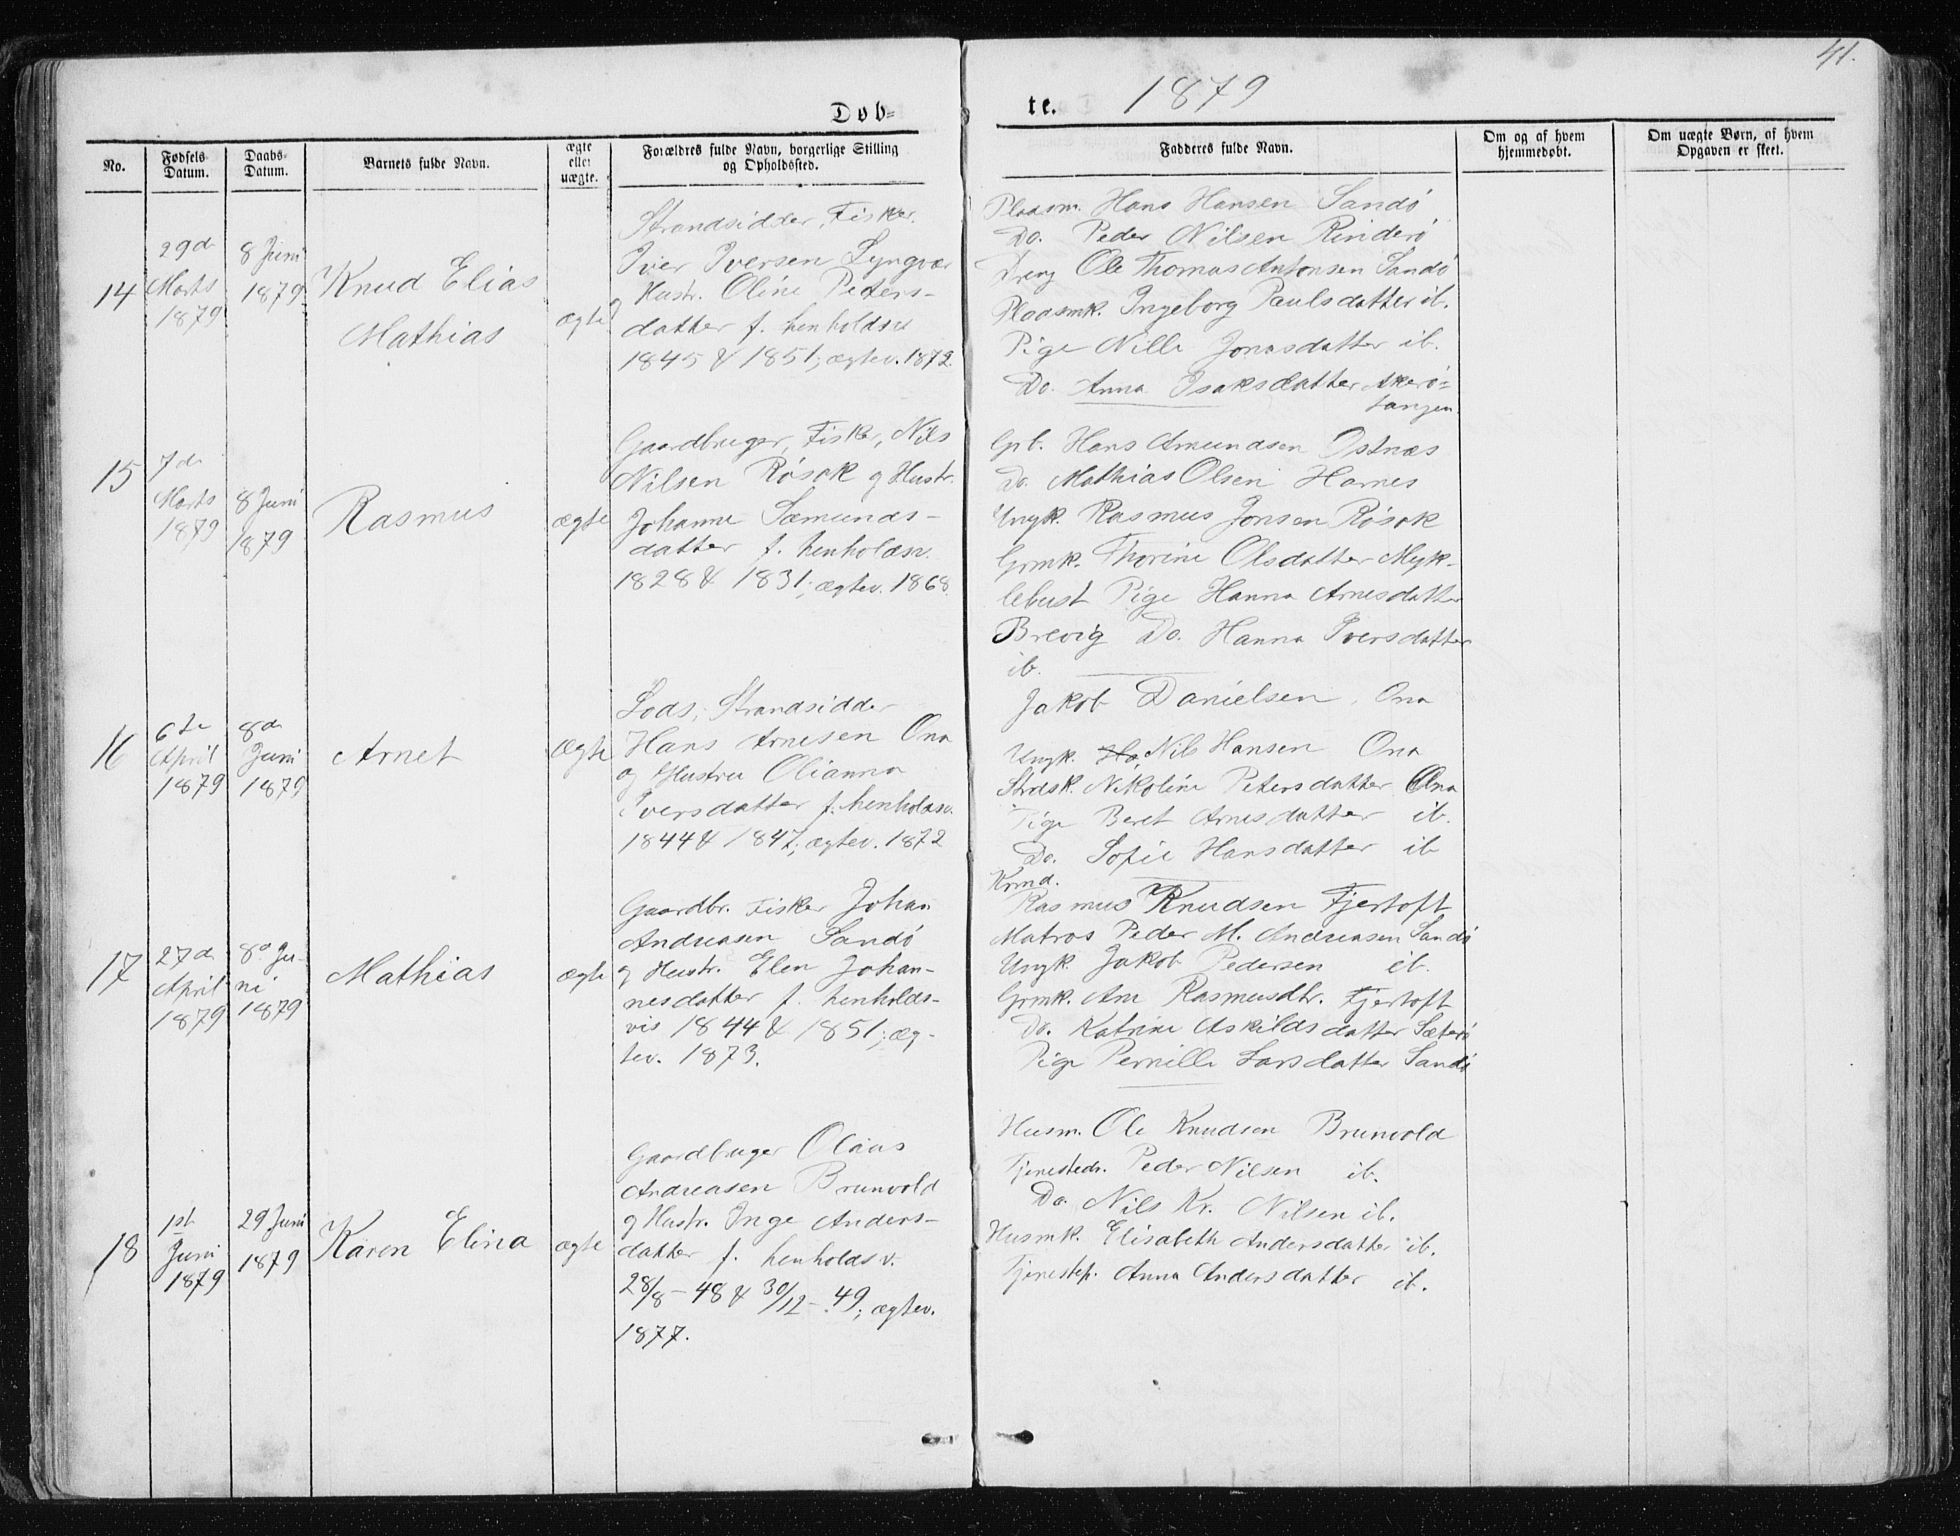 41.
Døb=
te. 1879
No.
Fødsels-
Datum.
Daabs-
Datum.
Barnets fulde Navn.
ægte
eller
uægte.
Forældres fulde Navn, borgerlige Stilling
og Opholdssted.
Fadderes fulde Navn.
Om og af hvem
hjemmedøbt.
Om uægte Børn, af hvem
Opgaven er skeet.
14
29de
Marts
1879
8 Juni
1879
Knud Elias
Mathias
ægte
Strandsidder, Fisker
Iver Iversen Lyngvær
g Hustr. Oline Peters-
datter f. henholdsv
1845 & 1851; ægtev. 1872
Pladsm. Hans Hansen Sandø
Do. Peder Nilsen Rinderø
Dreng Ole Thomas Antonsen Sandø
Pladsmk. Ingeborg Paulsdatter ib.
Pige Nille Jonasdatter ib.
Do. Anna Isaksdatter Akerø-
tangen
15
7de
Marts
1879
8 Juni
1879
Rasmus
ægte
Gaardbruger, Fisker, Nils
Nilsen Røsok g Hustr.
Johanne Sæmunds-
datter f. henholdsv.
1828 & 1831; ægtev. 1868
Grb. Hans Amundsen Ostnæs
Do. Mathias Olsen Harnes
Ungk. Rasmus Jonsen Røsok
Grmk. Thorine Olsdatter Myk-
lebust Pige Hanna Arnesdatter
Brevig Do. Hanna Iversdatter
ib.
16
6te
April
1879
8de
Juni
1879
Arnet
Ægte
Lods, Strandsidder
Hans Arnesen Ona
og Hustru Olianna
Iversdatter f. henholdsv.
1844 & 1847; ægtev. 1872
Jakob Danielsen, Ona
Ungk. Ha Nils Hansen Ona
Strdsk. Nikoline Petersdatter Ona
Pige Beret Arnesdatter ib.
Do. Sofie Hansdatter ib
17
27de
April
1879
8de Ju-
ni
1879
Mathias
ægte
Gaardbr. Fisker Johan
Andreasen Sandø
g Hustr. Elen Johan-
nesdatter f. henholds-
vis 1844 & 1851; æg-
tev. 1873.
Krmd.
Rasmus Knudsen Fjertoft
Matros Peder M. Andreasen Sandø
Ungk. Jakob Pedersen ib.
Grmk. Ane Rasmusdtr. Fjertoft
Do. Katrine Askildsdatter Sæterø
Pige Pernille Larsdatter Sandø
18
1st
Juni
1879
29 Juni
1879
Karen Elina
ægte
Gaardbruger Olaus
Andreasen Brunvold
g Hustr. Inge Anders-
datter f. henholdsv.
28/8 - 48 & 30/12 - 49; ægtev.
1877.
Husm. Ole Knudsen Brunvold
Tjenestedr. Peder Nilsen ib.
Do. Nils Kr. Nilsen ib.
Husmk. Elisabeth Andersdatter ib.
Tjenestep. Anna Andersdatter ib.